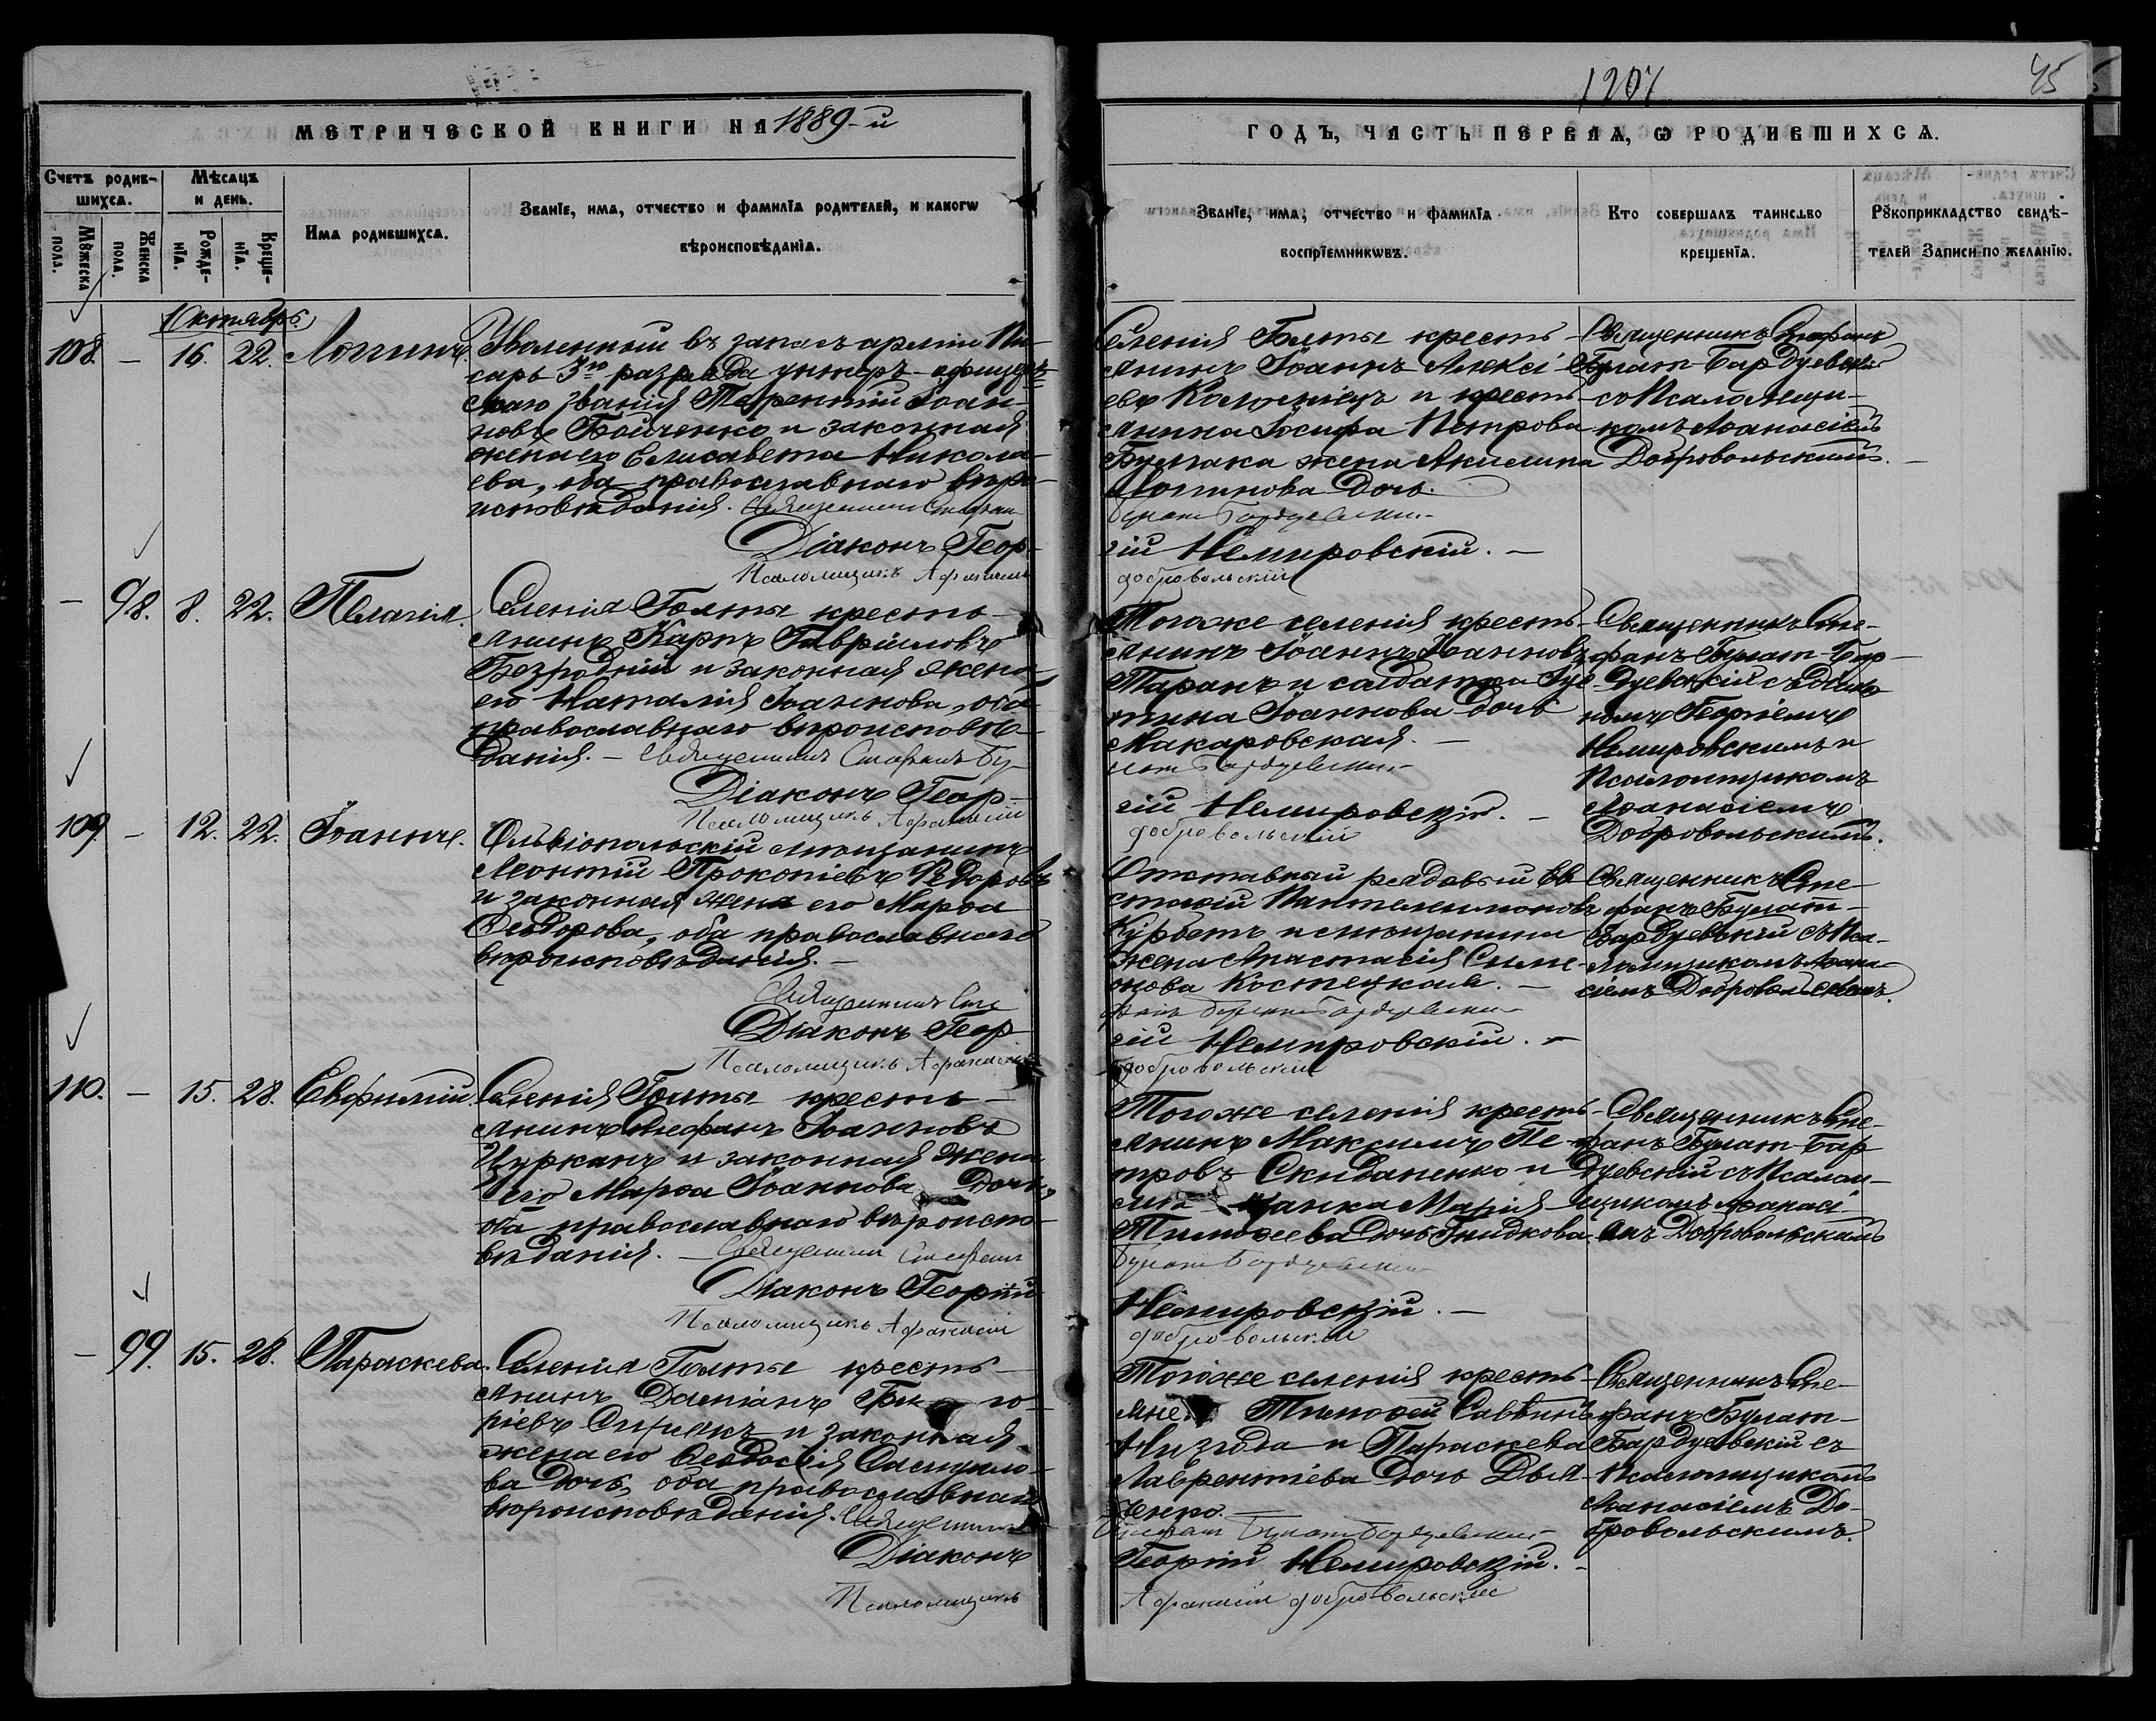 1207
45
МЕТРИЧЕСКОЙ КНИГИ НА 1889-й
ГОДЪ, ЧАСТЬ ПЕРВАЯ, Ѡ РОДИВШИХСЯ.
Счетъ родив-
шихся.
Мѣсяцъ
и день.
Мꙋжеска
пола.
Женска
пола.
Рожде-
нїя.
Креще-
нїя.
Имя родившихся.
Званїе, имя, отчество и фамилїя родителей, и какогѡ
вѣроисповѣданїя.
Званїе, имя, отчество и фамилїя
воспрїемникѡвъ.
Кто совершалъ таинство
крещенїя.
Рꙋкоприкладство свидѣ-
телей Записи по желанїю.
Октябрь
108. — 16. 22. Логинъ.
Уволенный въ запасъ арміи Пи-
сарь 3го разряда унтеръ-офицер-
скаго званія Терентій Іоан-
новъ Бойченко и законная
жена его Елисавета Никола-
ева, оба православнаго вѣро-
исповѣданія. Священникъ Стефанъ
Діаконъ Геор-
Псаломщикъ Афанасій
Селенія Голты кресть-
янинъ Іоаннъ Алексі-
евъ Коломіецъ и кресть-
янина Іосифа Петрова
жена Акилина
Логинова дочь.
Булат Бардуевскій
гій Немировскій. —
Добровольскій
Священникъ Стефанъ
Булат-Бардуевскій
со Псаломщи-
комъ Аѳанасіемъ
Добровольскимъ.
— 98. 8. 22. Пелагія.
Селенія Голты кресть-
янинъ Карпъ Гавріиловъ
Безродній и законная жена
его Наталія Іоаннова, оба
православнаго вѣроисповѣ-
данія. — Священникъ Стефанъ Бу-
Діаконъ Геор-
Псаломщикъ Афанасій
Тогоже селенія кресть-
янинъ Іоаннъ Іоанновъ
Таранъ и солдатка Іус-
тина Іоаннова дочь
Макаровская. —
лат Бардуевскій
гій Немировскій. —
Добровольскій
Священникъ Сте-
фанъ Булат-Бар-
дуевскій съ Діако-
номъ Георгіемъ
Немировскимъ и
Псаломщикомъ
Аѳанасіемъ
Добровольскимъ.
109. — 12. 22. Іоаннъ.
Ольвіопольскій мѣщанинъ
Леонтій Прокопіевъ Ѳедоровъ
и законная жена его Марѳа
Ѳеодорова, оба православнаго
вѣроисповѣданія. —
Священникъ Сте
Діаконъ Геор-
Псаломщикъ Афанасій
Отставный рядовый Ев-
стафій Пантелеимоновъ
Курбетъ и мѣщанина
жена Анастасія Симе-
онова Костецкая. —
фанъ Булат Бардуевскій
гій Немировскій. —
Добровольскій
Священникъ Сте-
фанъ Булат-
Бардуевскій съ Пса-
ломщикомъ Аѳана-
сіемъ Добровольскимъ.
110. — 15. 28. Евфимій.
Селенія Голты кресть-
янинъ Стефанъ Іоанновъ
Цурканъ и законная жена
его Марѳа Іоаннова дочь,
оба православнаго вѣроиспо-
вѣданія. — Священникъ Стефанъ
Діаконъ Георгій
Псаломщикъ Афанасій
Тогоже селенія кресть-
янинъ Максимъ Пе-
тровъ Скиданенко и
Марія
Тимоѳеева дочь Гнидкова.
Булат Бардуевскій
Немировскій. —
Добровольскій
Священникъ Сте-
фанъ Булат-Бар
дуевскій съ Псалом-
щикомъ Аѳанасі-
емъ Добровольскимъ
— 99. 15. 28. Параскева.
Селенія Голты кресть-
янинъ Даміанъ Григо-
ріевъ и законная
жена его Ѳеодосія
ва дочь, оба православнаго
вѣроисповѣданія. Священникъ
Діаконъ
Псаломщикъ
Тогоже селенія кресть-
яне: Тимоѳей Саввинъ
и Параскева
Лаврентіева дочь Дья-
ченко. —
Стефанъ Булат Бардуевскій
Георгій Немировскій. —
Афанасій Добровольскій
Священникъ Сте-
фанъ Булат-
Бардуевскій съ
Псаломщикомъ
Аѳанасіемъ До-
бровольскимъ.